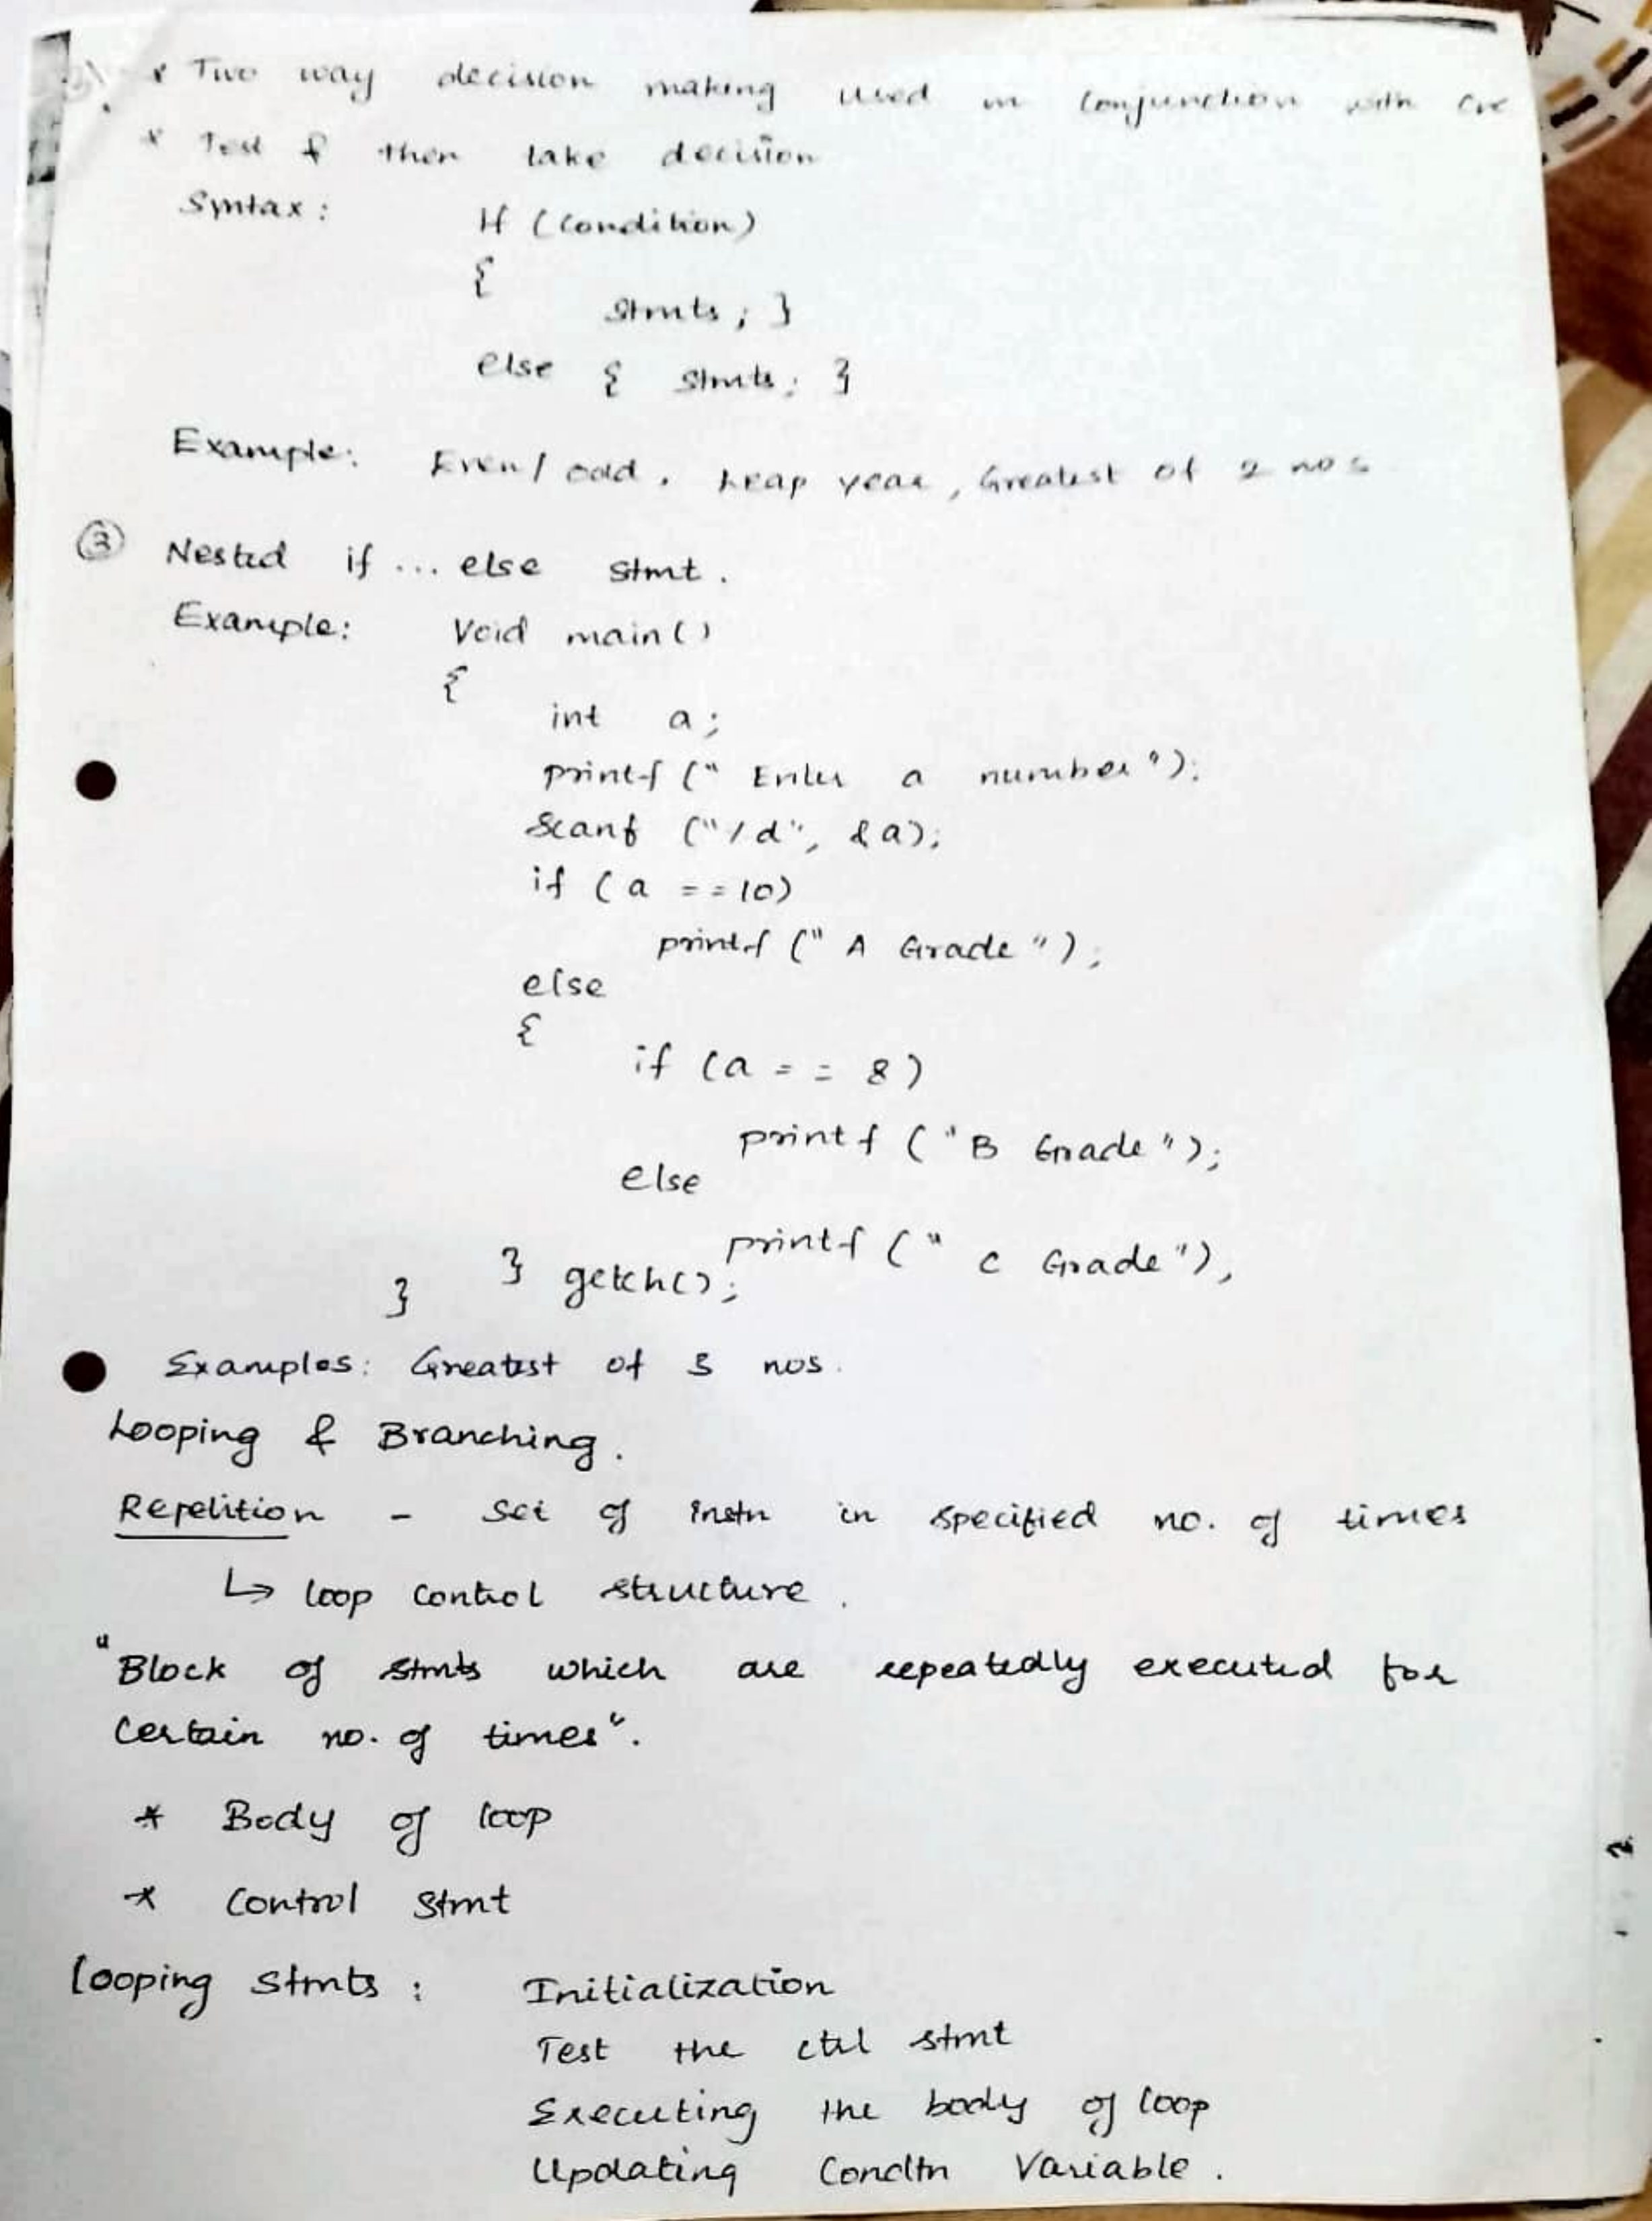 * Two way decision making used in conjunction with
* Test & then take decision
Syntax : If (condition)
{
Stmts ; }
else { stmts; }
Example: Even/odd, Leap year, Greatest of 2 nos
③ Nested if ... else stmt.
Example: Void main()
{
int a;
printf (" Enter a number");
Scanf ("/d", &a);
if (a == 10)
printf (" A Grade ");
else
{
if (a == 8)
printf ("B Grade");
else
printf (" C Grade"),
} getch();
}
Examples: Greatest of 3 nos.
Looping & Branching.
Repetition - Set of instn in specified no. of times
↳ loop control structure.
"Block of stmts which are repeatedly executed for
Certain no. of times".
* Body of loop
* Control Stmt
Looping stmts : Initialization
Test the ctrl stmt
Executing the body of loop
Updating Condtn Variable.
2